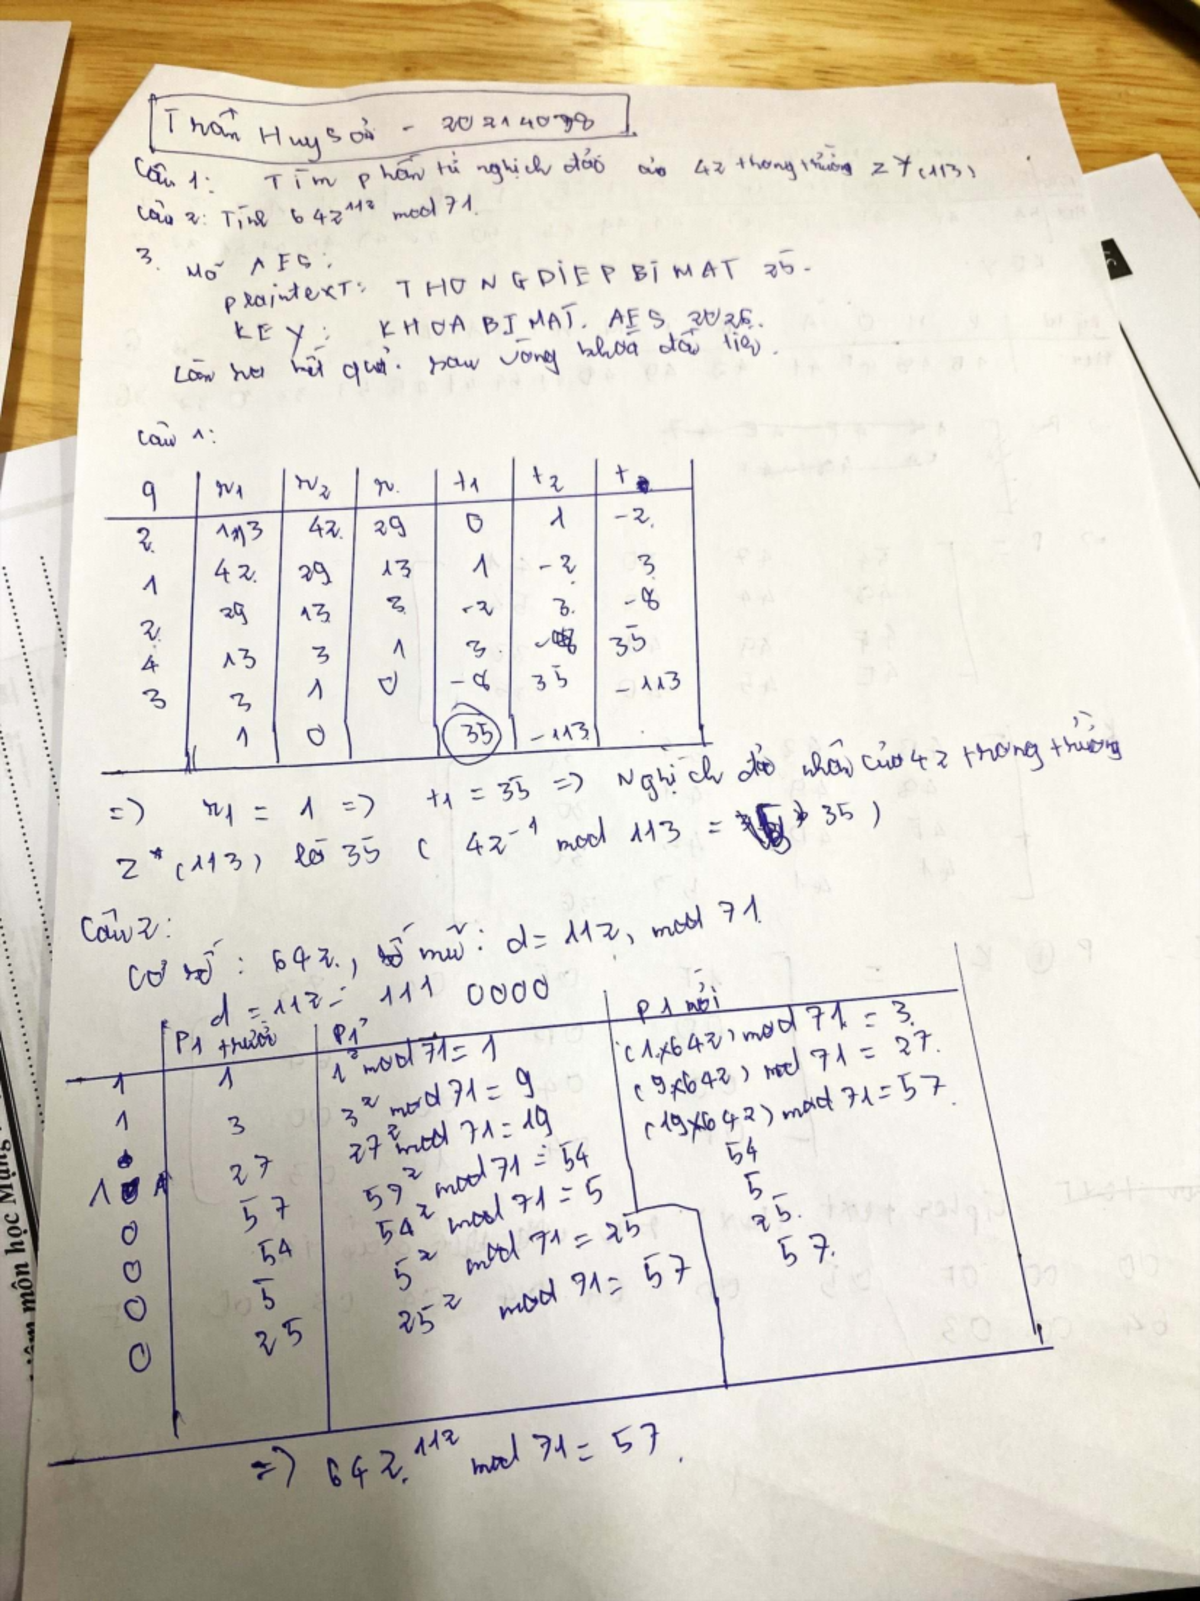 Trần Huy Sơn - 20214098
Câu 1: Tìm phần tử nghịch đảo của 42 trong trường Z*(113)
Câu 2: Tính 642^112 mod 71.
3. Mã AES:
plaintext: THONGDIEPBIMAT 25.
KEY: KHOABIMAT. AES 2025.
kết quả sau vòng khoá đầu tiên.
Câu 1:
q r1 r2 r t1 t2 t
2 113 42 29 0 1 -2
1 42 29 13 1 -2 3
2 29 13 3 -2 3 -8
4 13 3 1 3 -8 35
3 3 1 0 -8 35 -113
1 0 35 -113
=> r1 = 1 => t1 = 35 => Nghịch đảo nhân của 42 trong trường
Z*(113) là 35 ( 42^-1 mod 113 = 35 )
Câu 2:
Cơ số: 642, số mũ: d = 112, mod 71
d = 112 = 111 0000
P1 trước P1² P1 mới
1 1 1² mod 71 = 1 (1×642) mod 71 = 3
1 3 3² mod 71 = 9 (9×642) mod 71 = 27
1 27 27² mod 71 = 19 (19×642) mod 71 = 57
0 57 57² mod 71 = 54 54
0 54 54² mod 71 = 5 5
0 5 5² mod 71 = 25 25
0 25 25² mod 71 = 57 57
=> 642^112 mod 71 = 57.
môn học Mạng